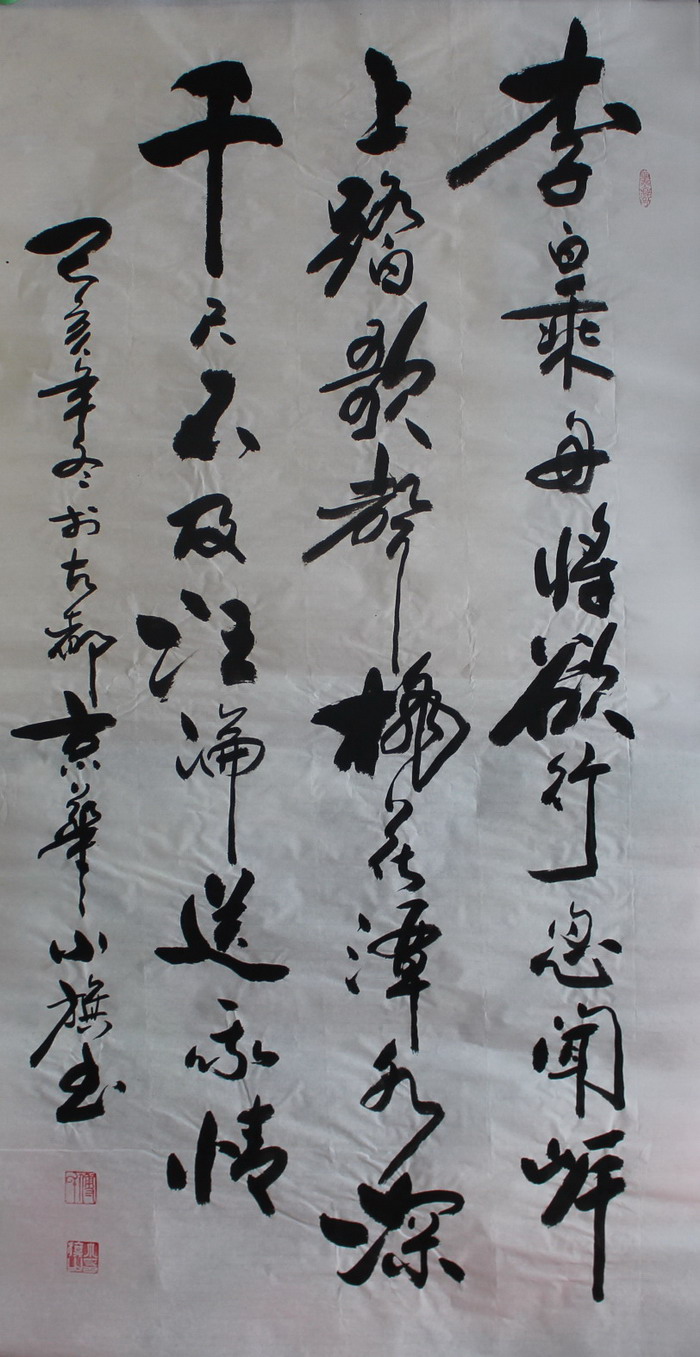 李白乘舟将欲行忽聞岸
上踏歌聲桃花潭水深
千尺不及汪淪送我情
己亥年冬於古都京華小旗书